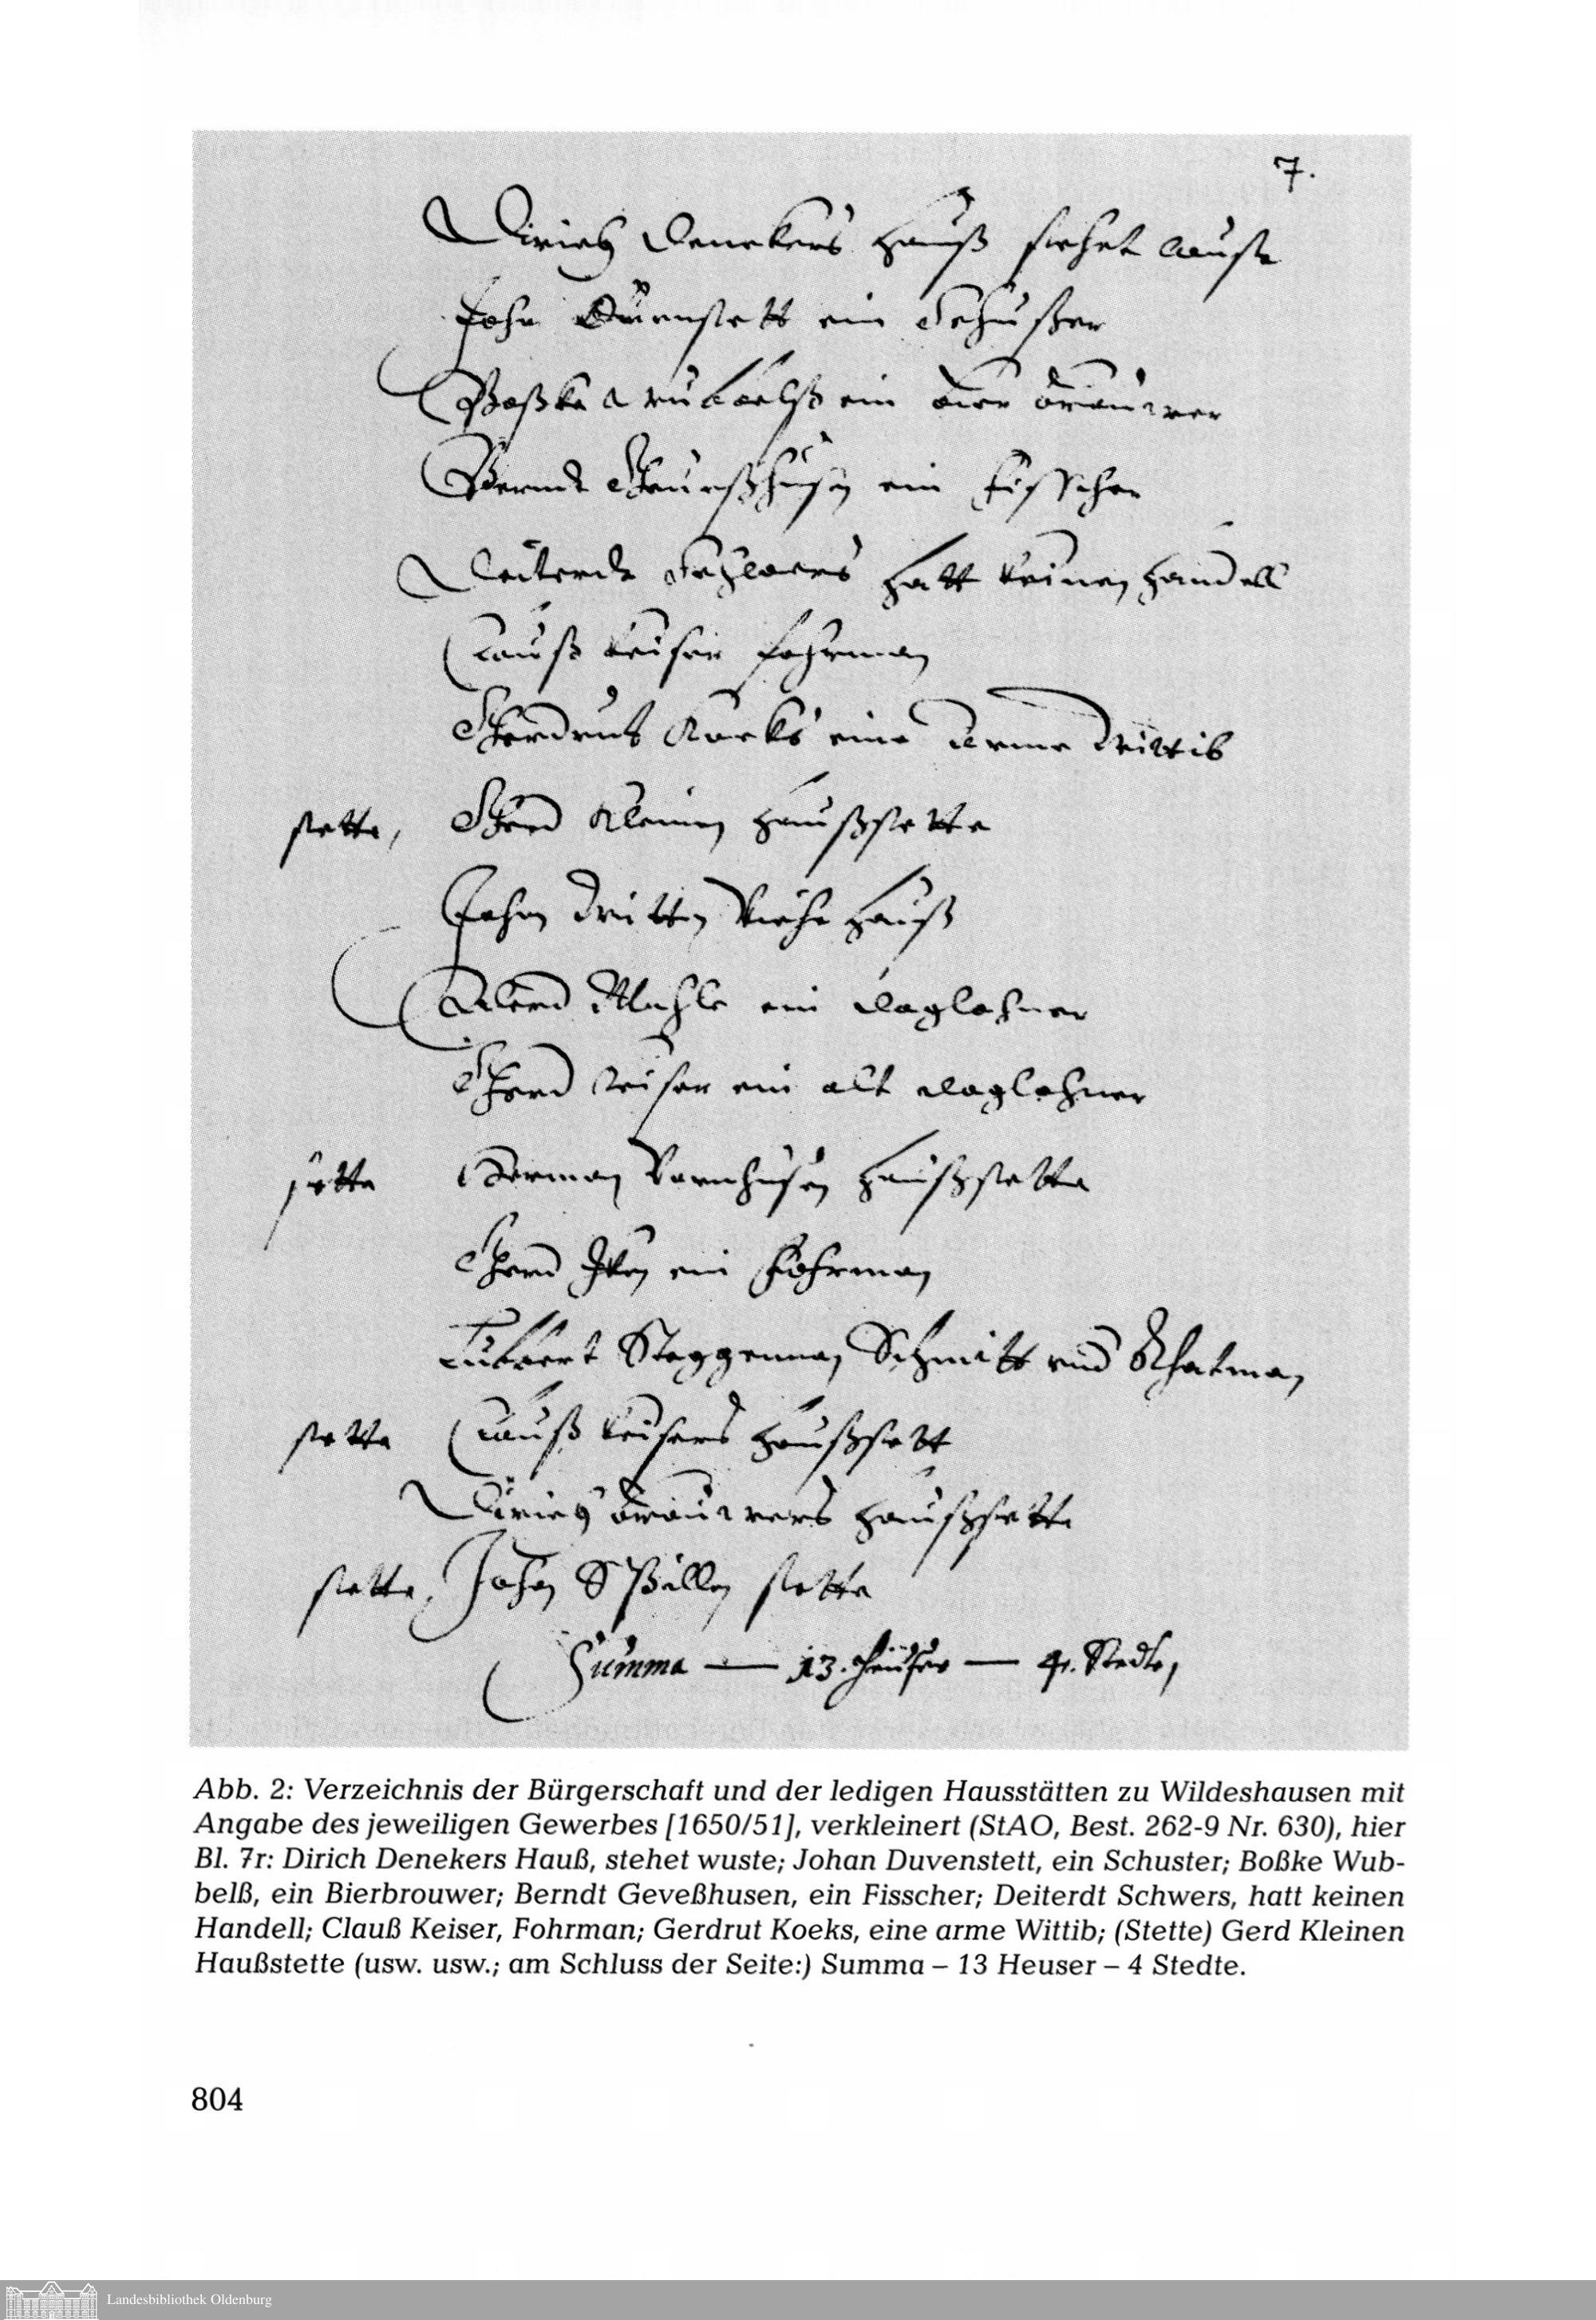 7.
Dirich Denekers Hauß stehet wuste
Johan Duvenstett ein Schuster
Boßke Wubbelß ein bier brouwer
Berndt Geveßhusen ein Fisscher
Deiterdt Schwers hatt keinen handell
Clauß Keiser fohrman
Gerdrut Koeks eine arme Wittib
stette, Gerd Kleinen haußstette
Johan Witten Viehe hauß
Alerd Muhle ein daglohner
Gerd Keiser ein alt daglohner
stette Herman Varnhusen haußstette
Gerd Iken ein Fohrman
Lubbert Steggeman Schmitt und Rhatman
stette Clauß Keisers haußstett
Dirich brouwers haußstette
stette, Johan Spillen stette
Summa — 13. Heuser — 4. Stedte,
Abb. 2: Verzeichnis der Bürgerschaft und der ledigen Hausstätten zu Wildeshausen mit
Angabe des jeweiligen Gewerbes [1650/51], verkleinert (StAO, Best. 262-9 Nr. 630), hier
Bl. 7r: Dirich Denekers Hauß, stehet wuste; Johan Duvenstett, ein Schuster; Boßke Wub-
belß, ein Bierbrouwer; Berndt Geveßhusen, ein Fisscher; Deiterdt Schwers, hatt keinen
Handell; Clauß Keiser, Fohrman; Gerdrut Koeks, eine arme Wittib; (Stette) Gerd Kleinen
Haußstette (usw. usw.; am Schluss der Seite:) Summa – 13 Heuser – 4 Stedte.
804
Landesbibliothek Oldenburg